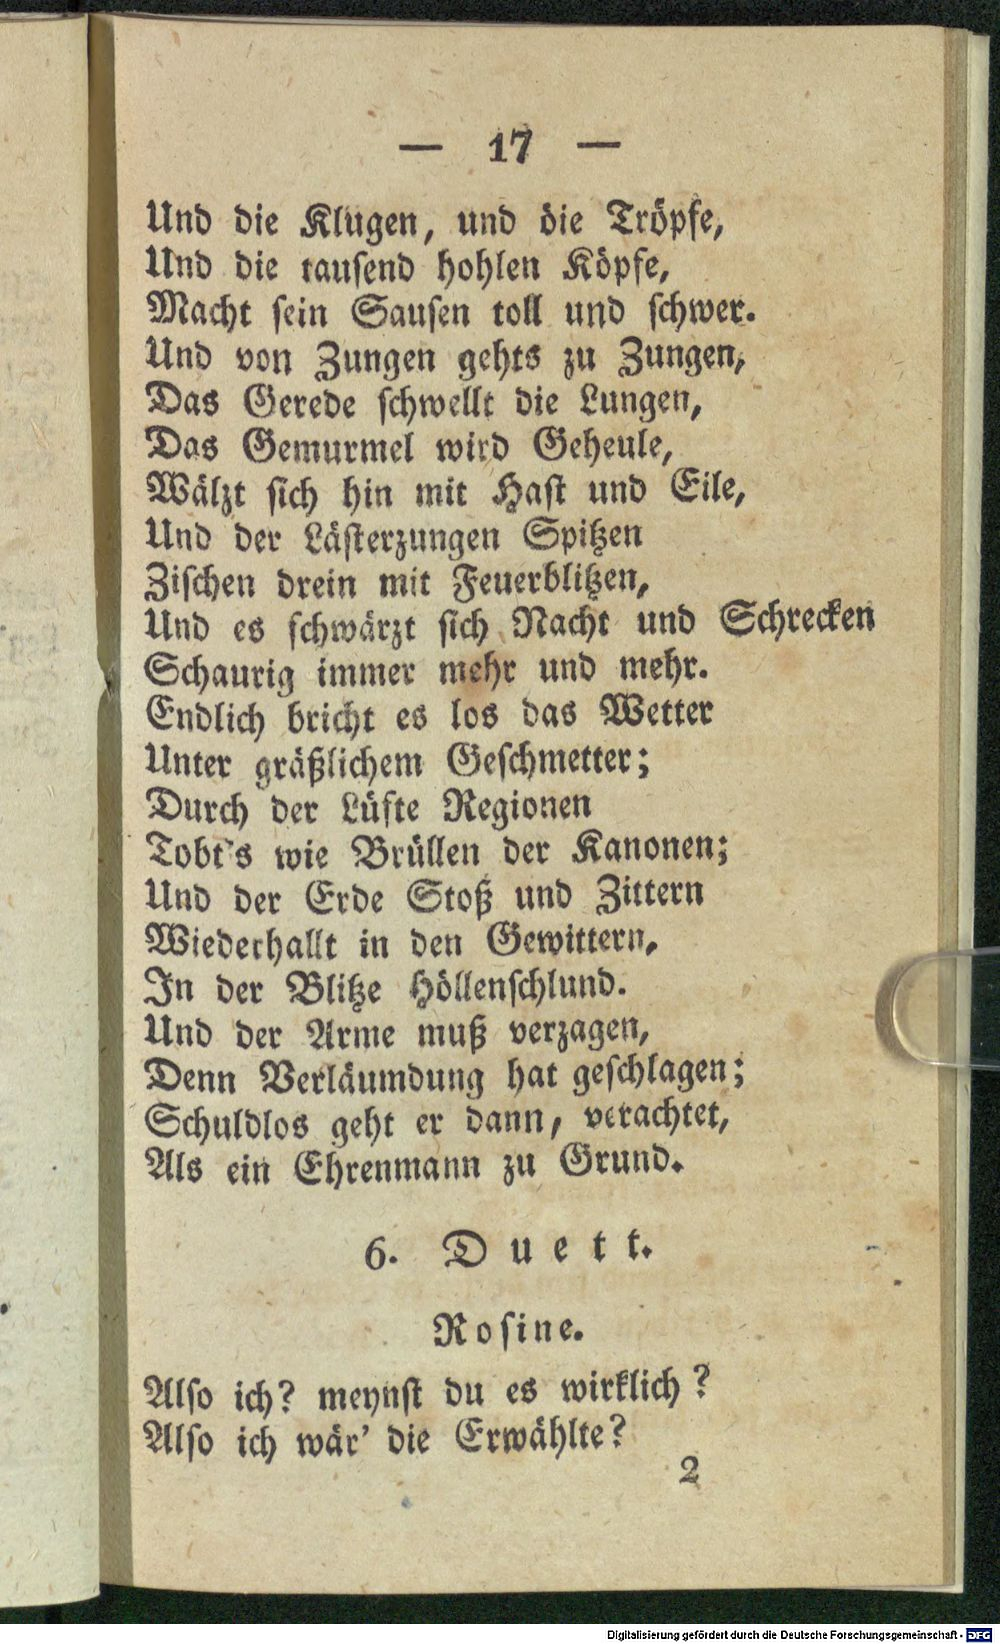 — 17 —
Und die Klugen, und die Tröpfe,
Und die tausend hohlen Köpfe,
Macht sein Sausen toll und schwer.
Und von Zungen gehts zu Zungen,
Das Gerede schwellt die Lungen,
Das Gemurmel wird Geheule,
Wälzt sich hin mit Hast und Eile,
Und der Lästerzungen Spitzen
Zischen drein mit Feuerblitzen,
Und es schwärzt sich Nacht und Schrecken
Schaurig immer mehr und mehr.
Endlich bricht es los das Wetter
Unter gräßlichem Geschmetter;
Durch der Lüfte Regionen
Tobt's wie Brüllen der Kanonen;
Und der Erde Stoß und Zittern
Wiederhallt in den Gewittern,
In der Blitze Höllenschlund.
Und der Arme muß verzagen,
Denn Verläumdung hat geschlagen;
Schuldlos geht er dann, verachtet,
Als ein Ehrenmann zu Grund.
6. Duett.
Rosine.
Also ich? meynst du es wirklich?
Also ich wär' die Erwählte?
2
Digitalisierung gefördert durch die Deutsche Forschungsgemeinschaft - DFG